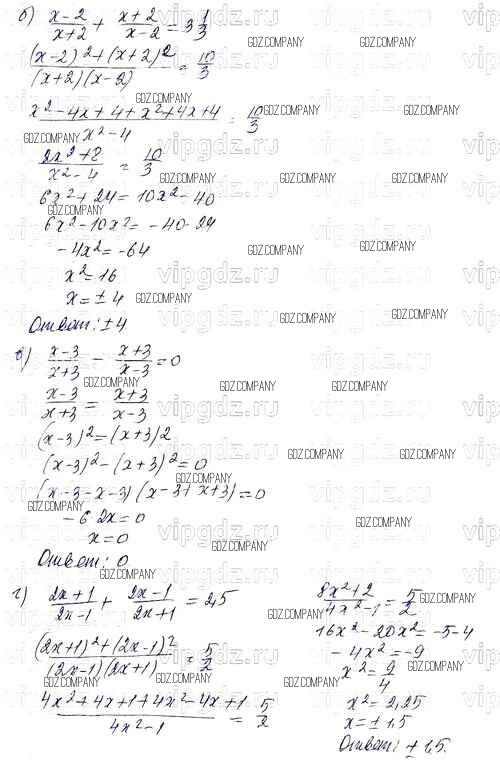 б) (x-2)/(x+2) + (x+2)/(x-2) = 3 1/3
((x-2)²+(x+2)²)/((x+2)(x-2)) = 10/3
(x²-4x+4+x²+4x+4)/(x²-4) = 10/3
(2x²+8)/(x²-4) = 10/3
6x²+24=10x²-40
6x²-10x²=-40-24
-4x²=-64
x²=16
x=±4
Ответ: ±4
в) (x-3)/(x+3) - (x+3)/(x-3) = 0
(x-3)/(x+3) = (x+3)/(x-3)
(x-3)²=(x+3)2
(x-3)²-(x+3)²=0
(x-3-x-3)(x-3+x+3)=0
-6 2x=0
x=0
Ответ: 0
г) (2x+1)/(2x-1) + (2x-1)/(2x+1) = 2,5
((2x+1)²+(2x-1)²)/((2x-1)(2x+1)) = 5/2
(4x²+4x+1+4x²-4x+1)/(4x²-1) = 5/2
(8x²+2)/(4x²-1) = 5/2
16x²-20x²=-5-4
-4x²=-9
x²=9/4
x²=2,25
x=±1,5
Ответ: ±1,5.
vipgdz.ru
GDZ.COMPANY